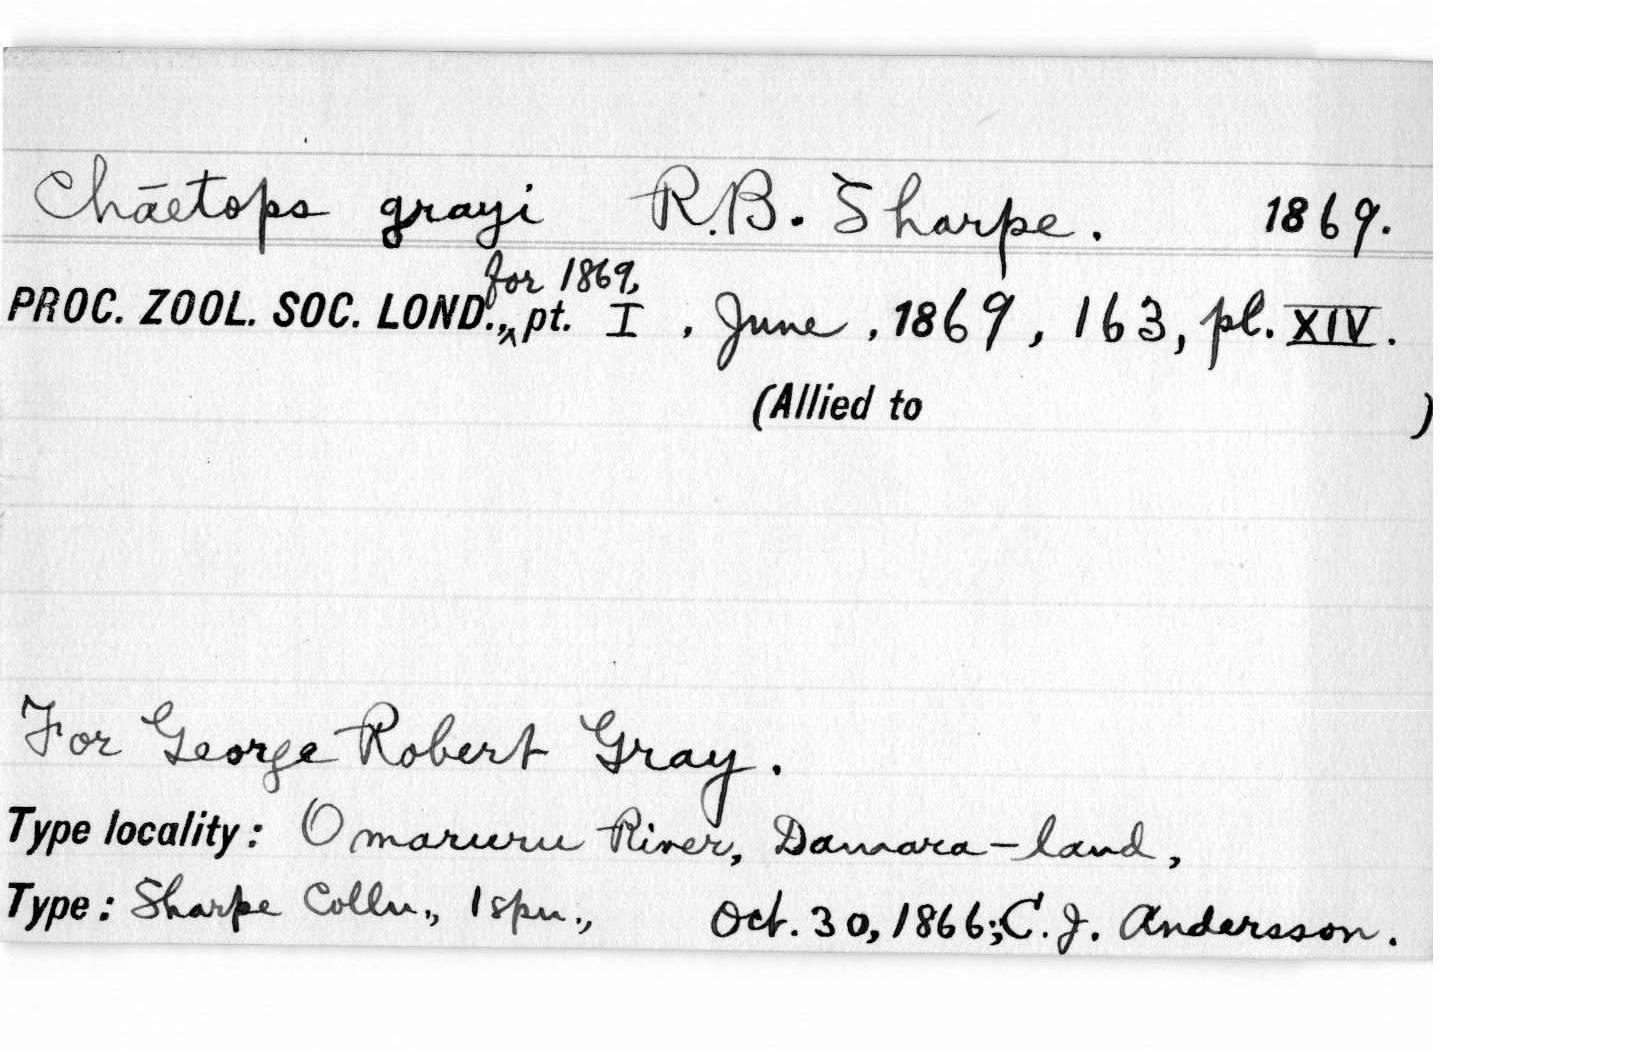 Chāetops grayi R.B. Sharpe. 1869.
PROC. ZOOL. SOC. LOND., for 1869, pt. I, June, 1869, 163, pl. XIV.
(Allied to )
For George Robert Gray.
Type locality: Omaruru River, Damara-land,
Type: Sharpe Colln., 1 spn., Oct. 30, 1866; C. J. Andersson.